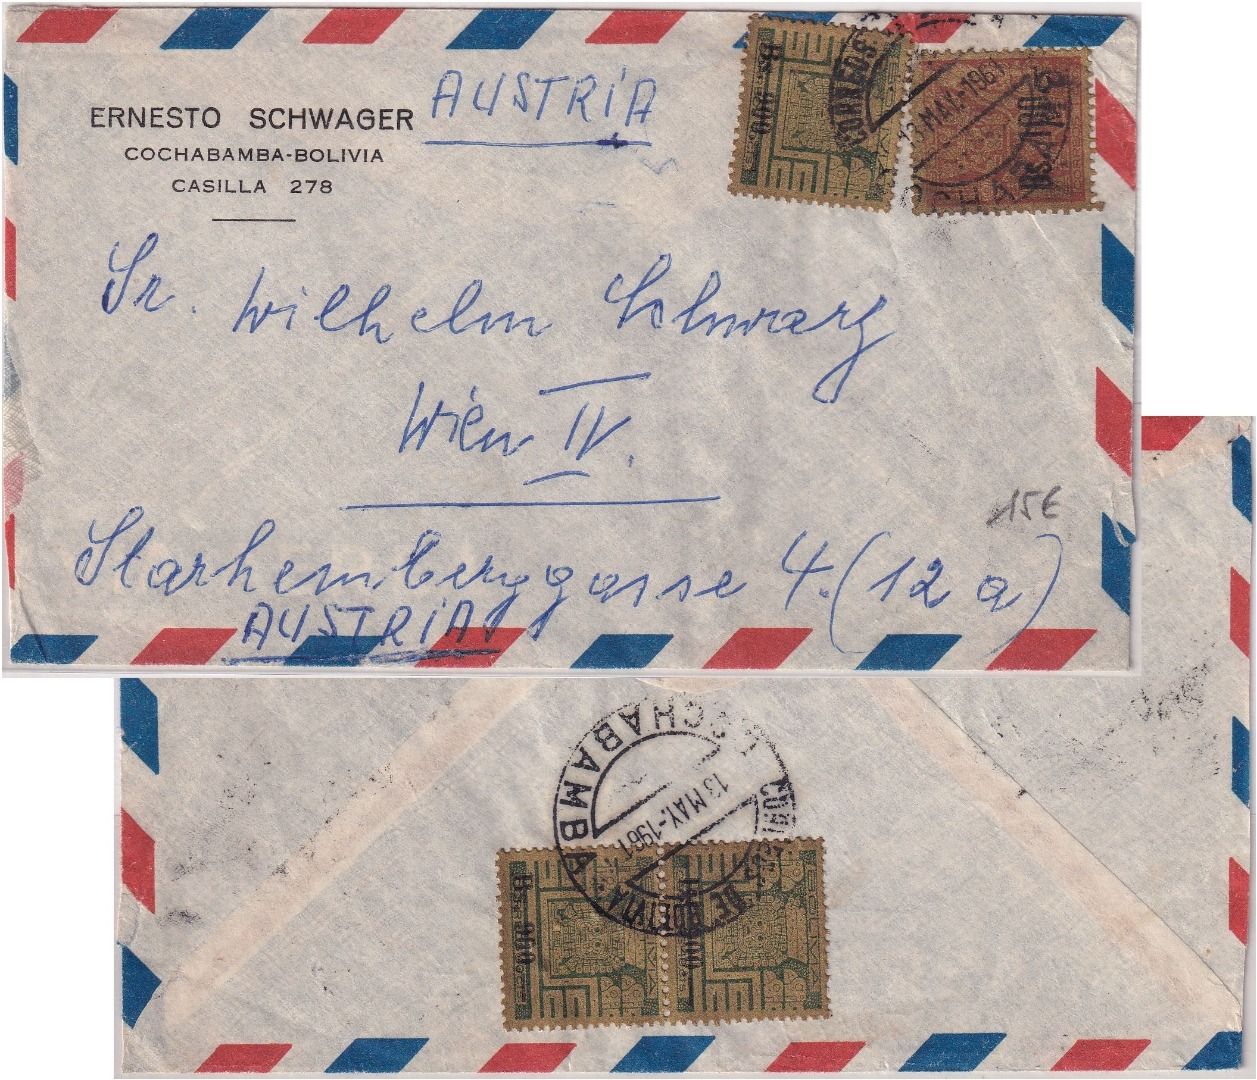 ERNESTO SCHWAGER
COCHABAMBA-BOLIVIA
CASILLA 278
AUSTRIA
CORREOS
13 MAY.-1961
Sr. Wilhelm Schwarz
Wien IV.
Starhemberggasse 4. (12 a)
AUSTRIA
15€
COCHABAMBA
13 MAY.-1961
CORREOS DE BOLIVIA